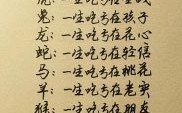 虎：一生吃亏在义气
兔：一生吃亏在孩子
龙：一生吃亏在花心
蛇：一生吃亏在轻信
马：一生吃亏在桃花
羊：一生吃亏在老实
猴：一生吃亏在朋友